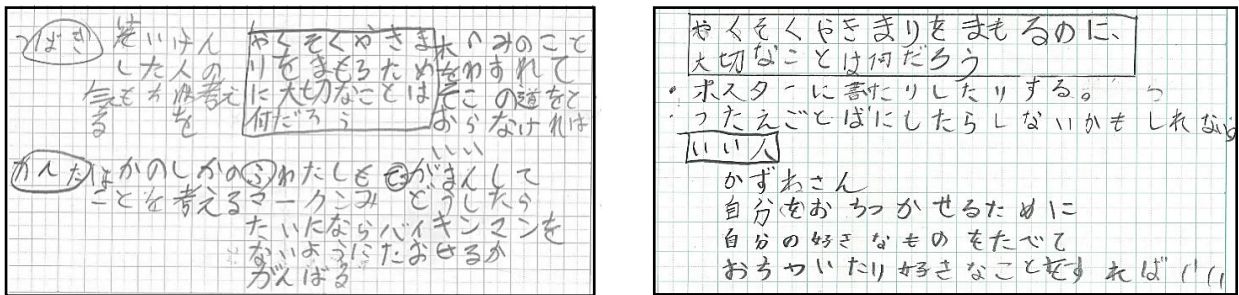 つばき
した人の
気もちを考え
る
やくそくやきま
りをまもるため
に大切なことは
何だろう
木のみのこと
をわすれて
そこの道をと
おらなければ
いい
かんた
ほかのしかの
ことを考える
わたしも
マークこみ
たいになら
ないように
がんばる
がまんして
どうしたら
バイキンマンを
たおせるか
やくそくやきまりをまもるのに、
大切なことは何だろう
・ポスターに書たりしたりする。
・うたえごとばにしたらしないかもしれない
いい人
かずねさん
自分をおちつかせるために
自分の好きなものをたべて
おちついたり好きなことをすればいい